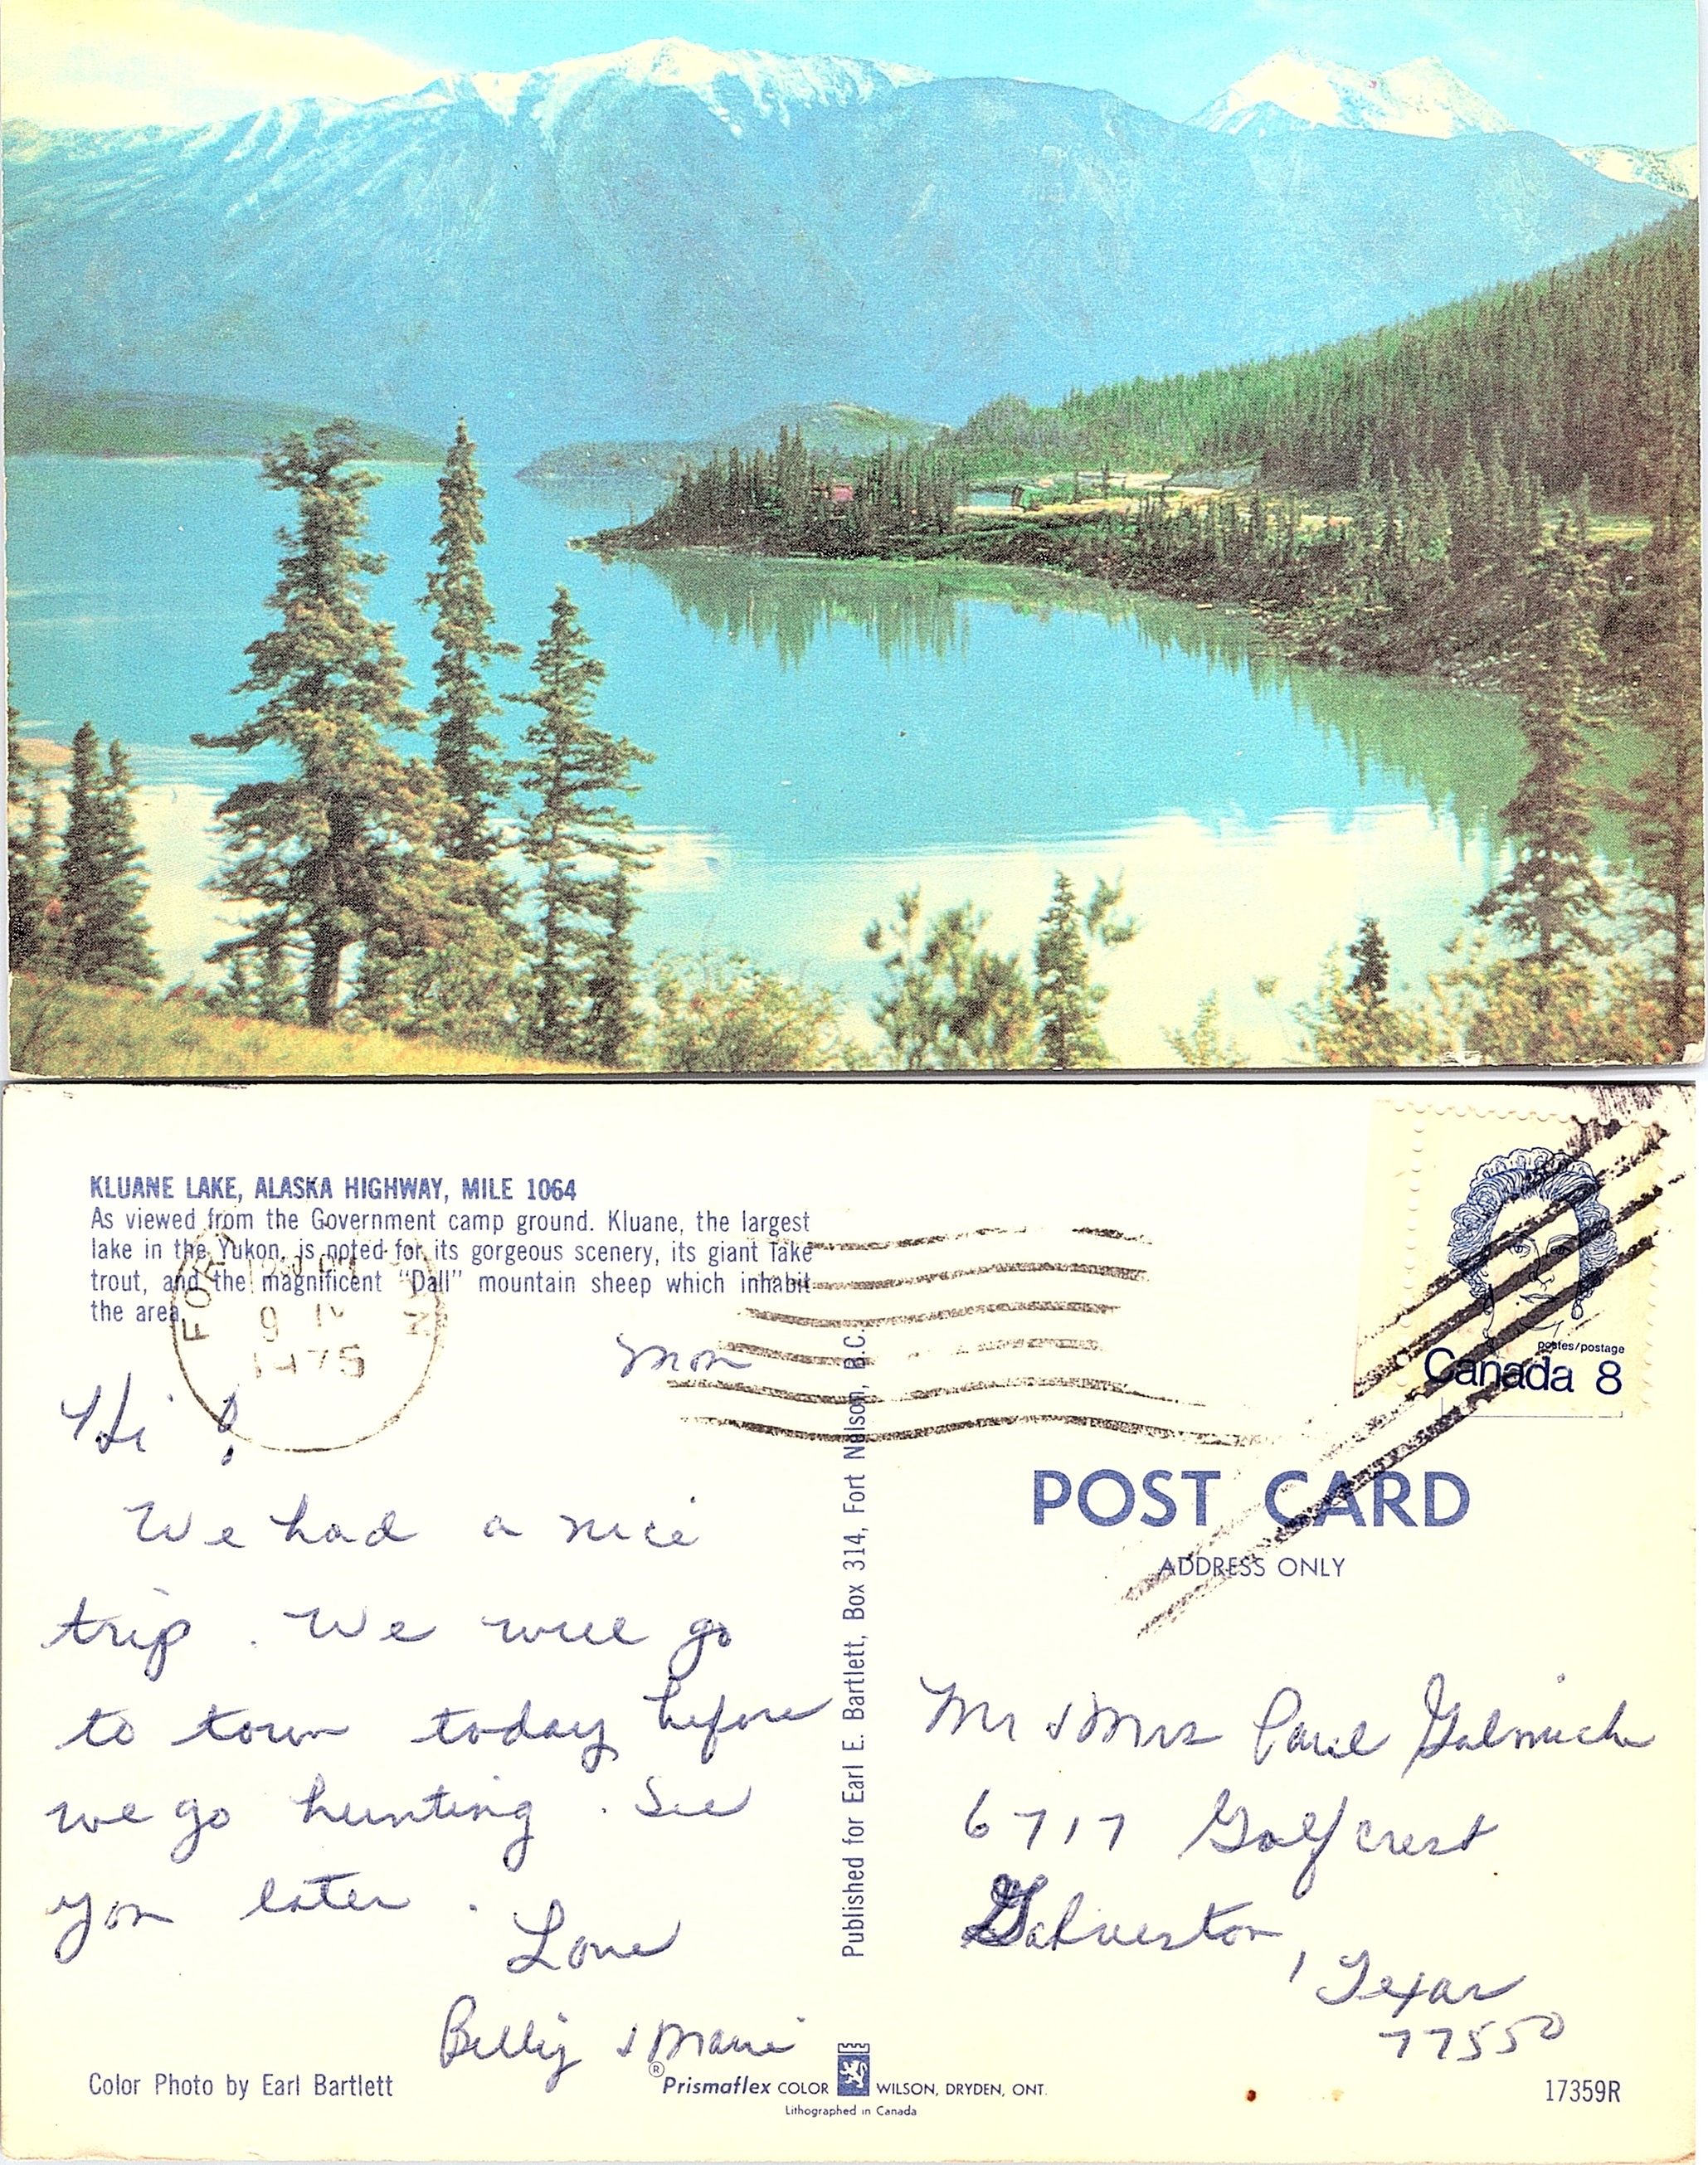 KLUANE LAKE, ALASKA HIGHWAY, MILE 1064
As viewed from the Government camp ground. Kluane, the largest
lake in the Yukon, is noted for its gorgeous scenery, its giant lake
trout, and the magnificent "Dall" mountain sheep which inhabit
the area.
FOR
9
1975
Mon
Hi!
We had a nice
trip. We will go
to town today before
we go hunting. See
you later.
Love
Billy & Marie
Color Photo by Earl Bartlett
Published for Earl E. Bartlett, Box 314, Fort Nelson, B.C.
postes/postage
Canada 8
POST CARD
ADDRESS ONLY
Mr & Mrs Paul
6717 Golfcrest
Galveston, Texas
77550
® Prismaflex COLOR WILSON, DRYDEN, ONT.
Lithographed in Canada
17359R